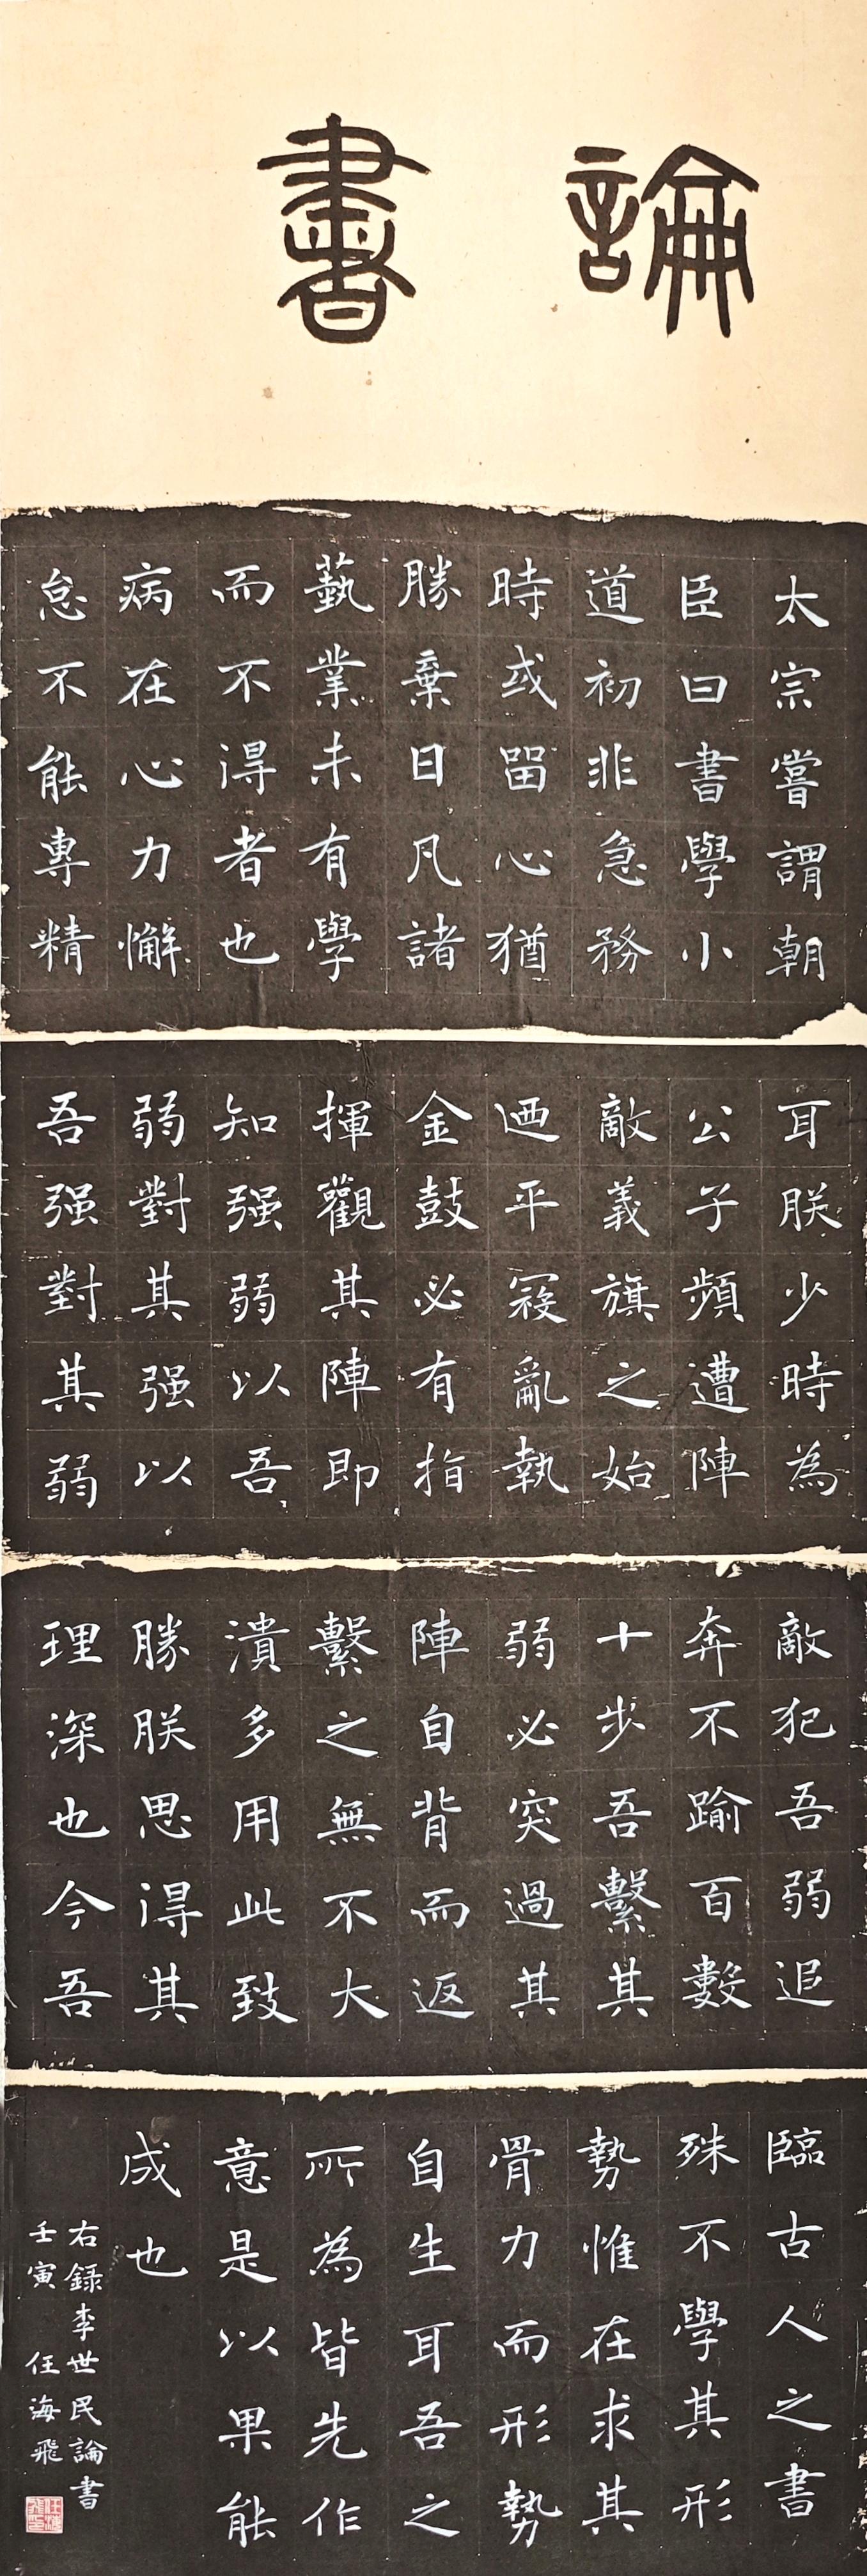 論書
太宗嘗謂朝
臣曰書學小
道初非急務
時或留心猶
勝棄日凡諸
藝業未有學
而不得者也
病在心力懈
怠不能專精
耳朕少時為
公子頻遭陣
敵義旗之始
迺平寇亂執
金鼓必有指
揮觀其陣即
知强弱以吾
弱對其强以
吾强對其弱
敵犯吾弱追
奔不踰百數
十步吾繫其
弱必突過其
陣自背而返
繫之無不大
潰多用此致
勝朕思得其
理深也今吾
臨古人之書
殊不學其形
勢惟在求其
骨力而形勢
自生耳吾之
所為皆先作
意是以果能
成也
右録李世民論書
壬寅 任海飛